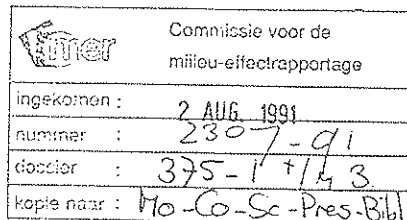 mer
Commissie voor de
milieu-effectrapportage
ingekomen : 2 AUG. 1991
nummer : 2307-91
dossier : 375-1 t/m 3
kopie naar : Mo-Co-Sc-Pres-Bibl